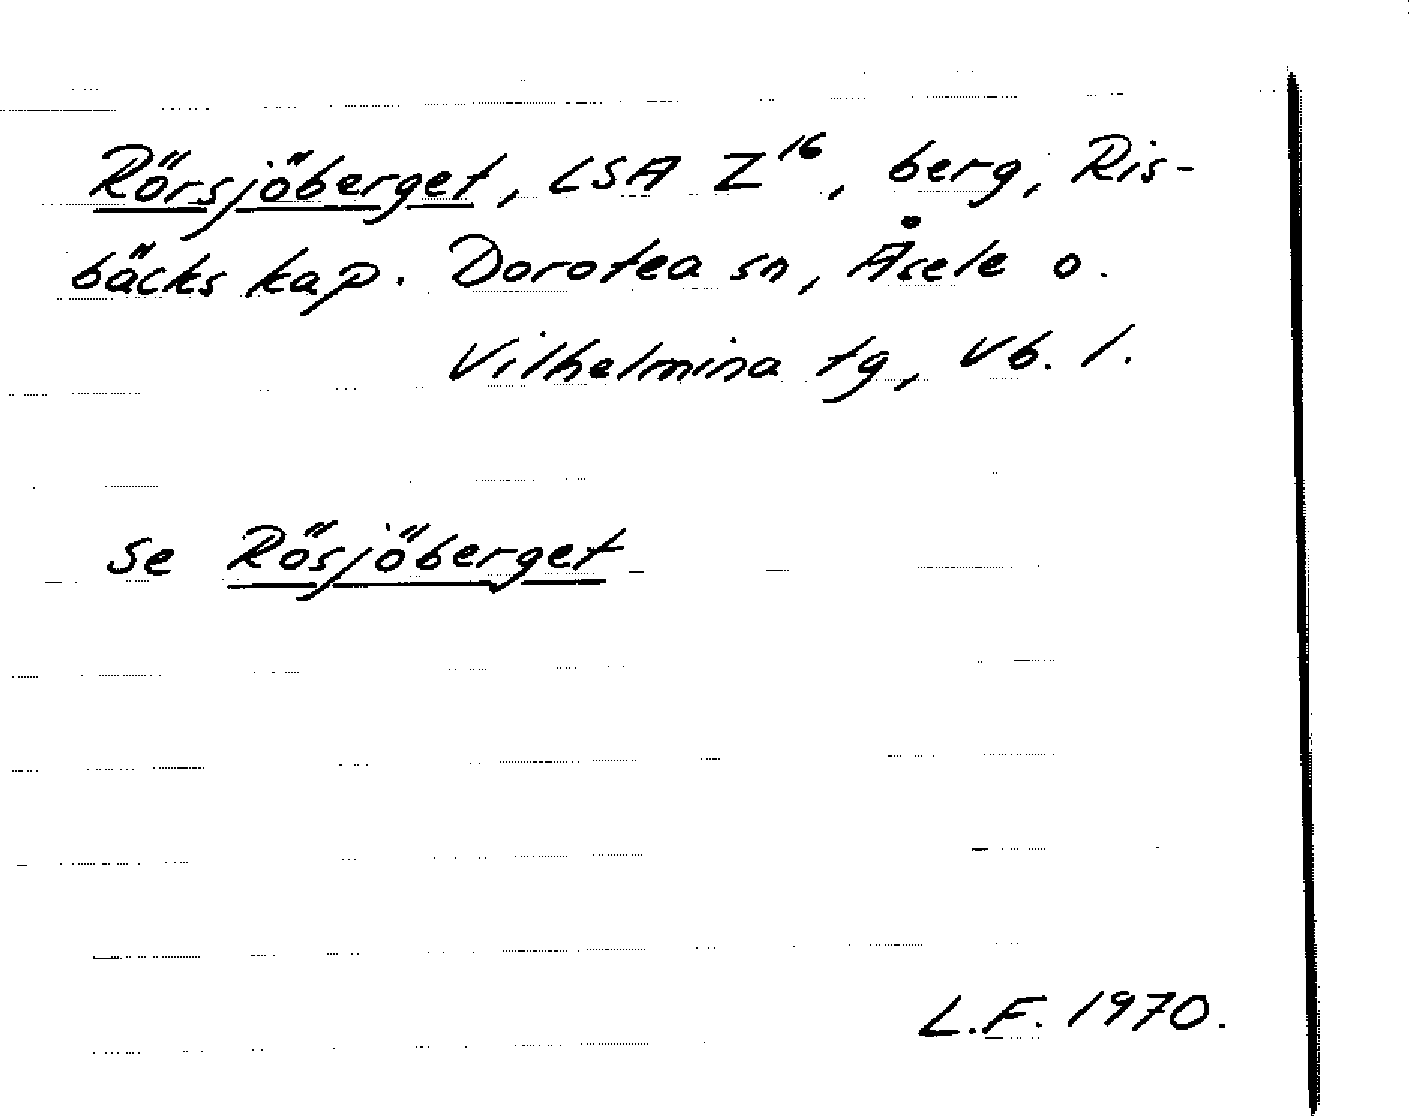 Rörsjöberget, LSA Z¹⁶, berg, Ris-
bäcks kap. Dorotea sn, Åsele o.
Vilhelmina tg, Vb. l.
se Rösjöberget
L.F. 1970.